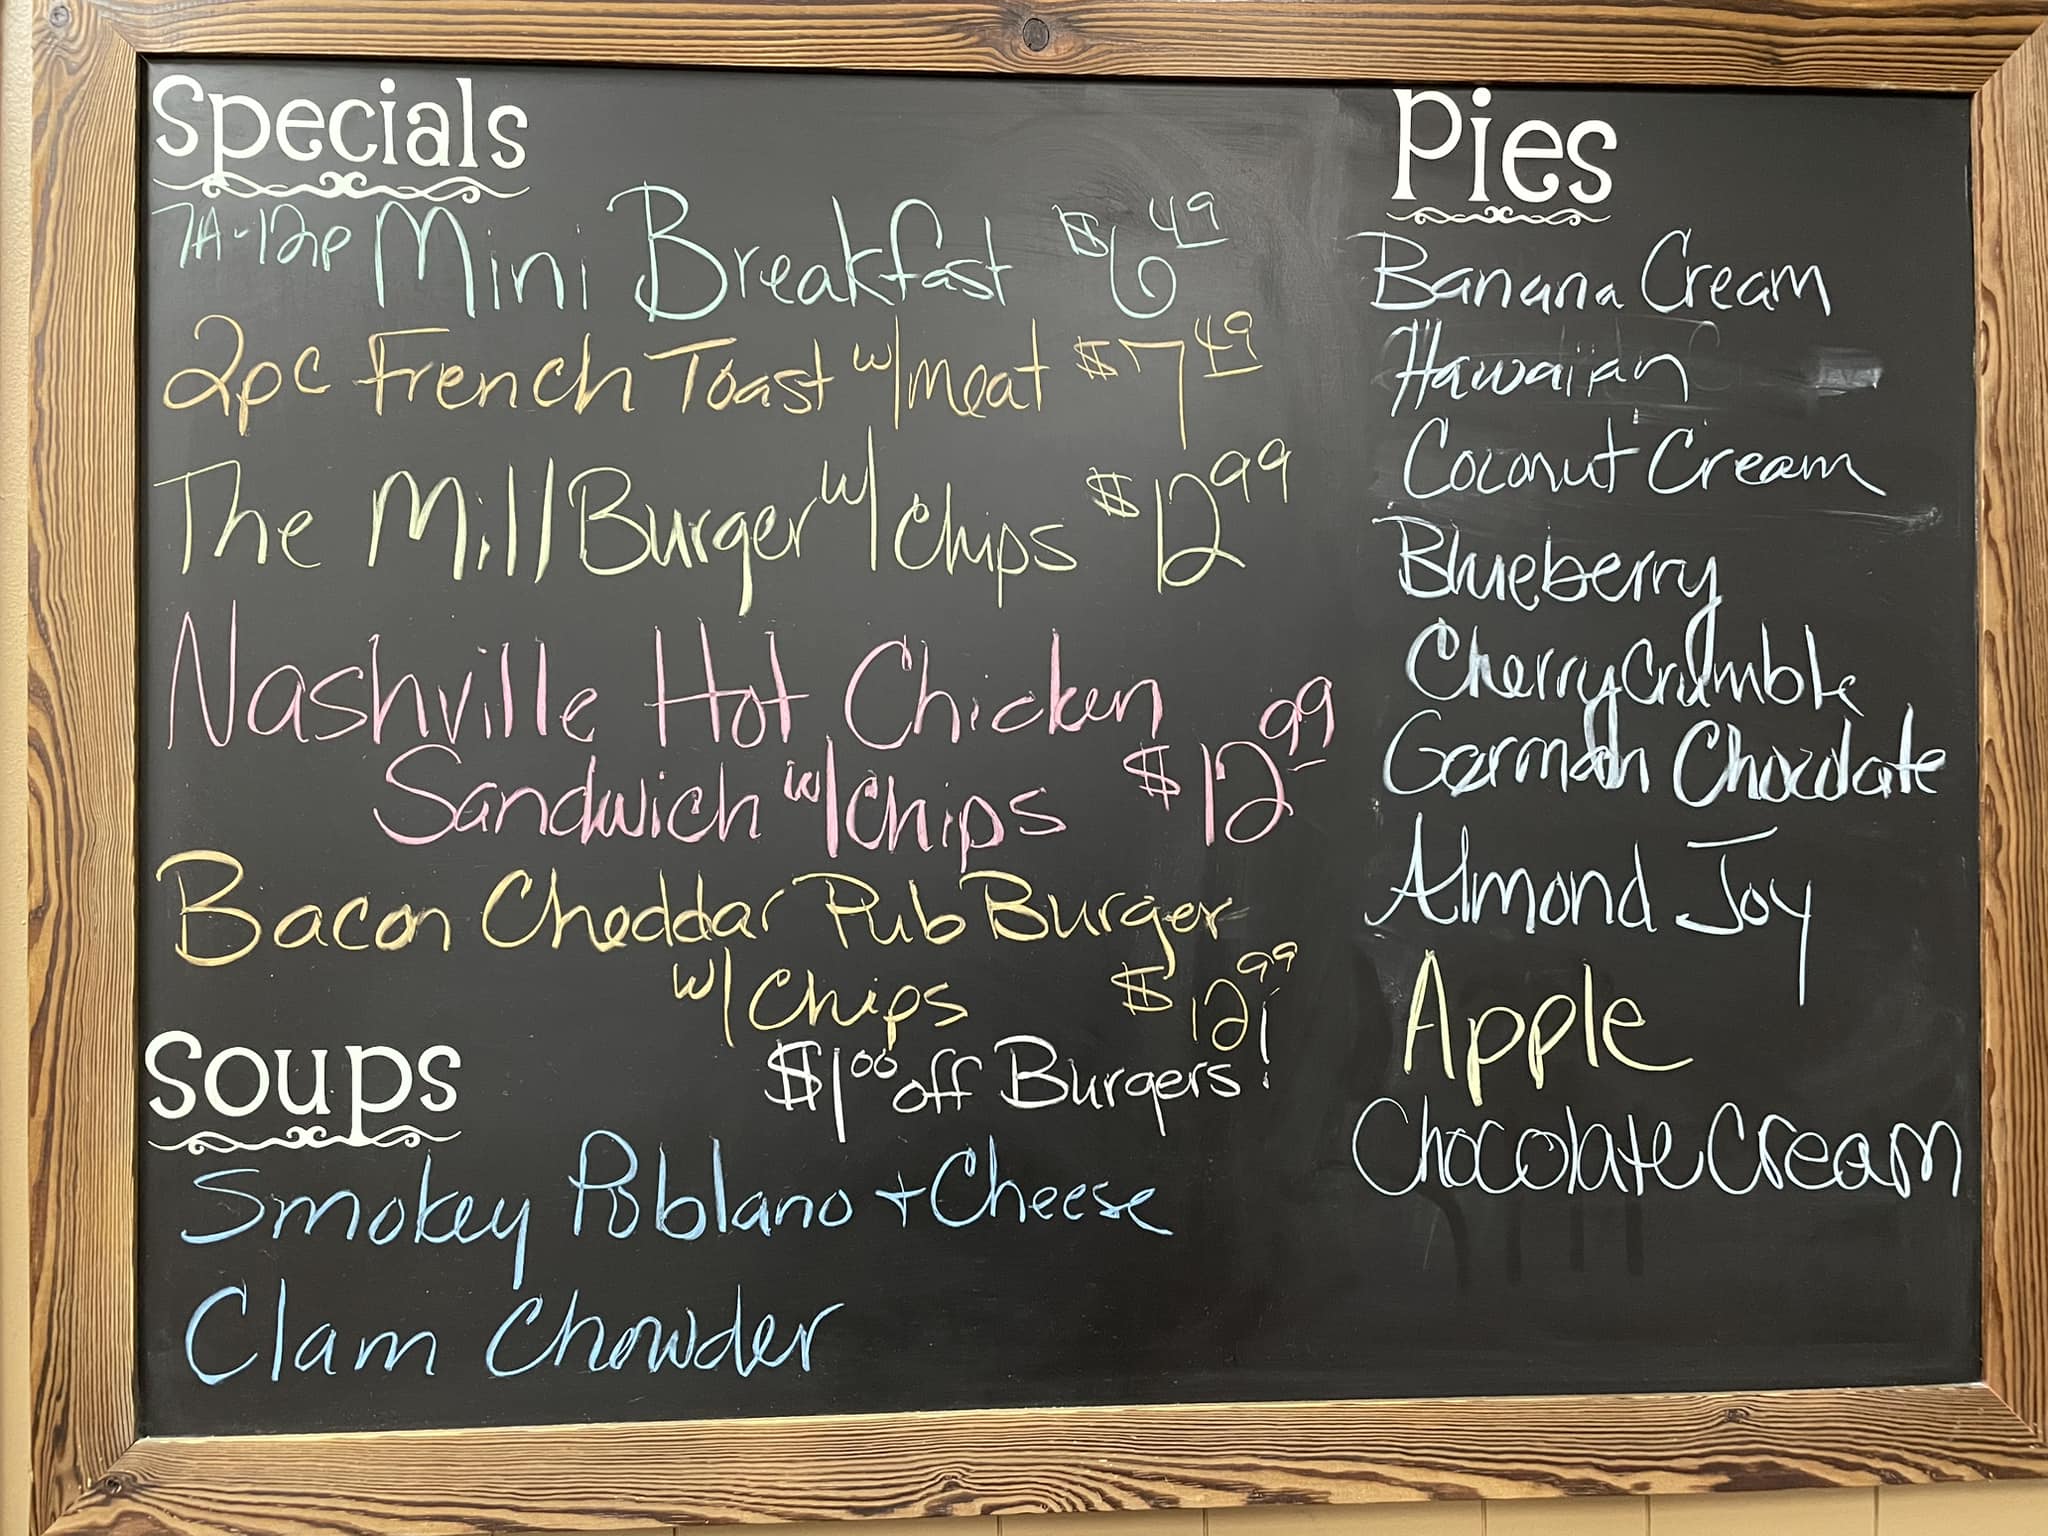 Specials
7A-12p Mini Breakfast $6.49
2pc French Toast w/meat $7.49
The Mill Burger w/ chips $12.99
Nashville Hot Chicken
Sandwich w/chips $12.99
Bacon Cheddar Pub Burger
w/ Chips $12.99
$1.00 off Burgers!
Soups
Smokey Poblano + Cheese
Clam Chowder
Pies
Banana Cream
Hawaiian
Coconut Cream
Blueberry
Cherry Crumble
German Chocolate
Almond Joy
Apple
Chocolate Cream